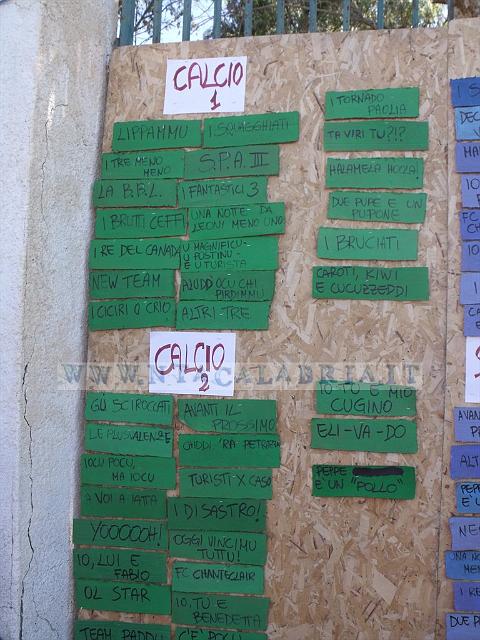 CALCIO
1
LIPPAMMU
I SQUAGGHIATI
I TRE MENO
MENO
S.P.A. III
LA B.B.L.
I FANTASTICI 3
I BRUTTI CEFFI
UNA NOTTE DA
LEONI MENO UNO
I RE DEL CANADA
U MAGNIFICU-
U POSTINU-
E U TURISTA
NEW TEAM
OCU CHI
PIRDIMMU
I CICIRI O CRIO
ALTRI-TRE
I TORNADO
PAOLIA
TA VIRI TU?!?
HALAMELA HOCLA!
DUE PUPE E UN
PUPONE
I BRUCIATI
CAROTI, KIWI
E CUCUZZEDDI
CALCIO
2
WWW.NTACALABRIA.IT
GLI SCIROCCATI
AVANTI IL
PROSSIMO
LE PLUSVALENZE
CHDDI 'RA
IOCU POCU,
MA IOCU
TURISTI X CASO
A VOI A IATTA
I DISASTRO!
YOOOOOH!
OGGI VINCIMU
TUTTU!
IO, LUI E
FABIO
FC CHANTECLAIR
OL STAR
IO, TU E
BENEDETTA
TEAM PADDU
C'E' POCU
IO-TU E MIO
CUGINO
ELI-VA-DO
PEPPE
E' UN "POLLO"